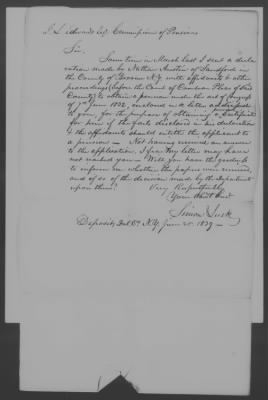 J. L. Edwards Esq. Commissioner of Pensions
Sir.
Some time in March last I sent a decla
ration made by Nathan Austin of Sandford in
the County of Broome N.Y. with affidavits & other
proceedings (before the Court of Common Pleas of this
County) to obtain a pension under the act of Congress
of 7th June 1832, enclosed in a letter addressed
to you, for the purpose of obtaining a Certificate
for him if the facts disclosed in his declaration
& the affidavits should entitle the applicant to
a pension — Not having received an answer
to the application, I fear my letter may have
not reached you — Will you have the goodness
to inform me whether the papers were received,
and if so of the decision made by the Department
upon them?
Very Respectfully
Your Obdt Servt
Simon
Deposit, N.Y. June 25. 1839 —